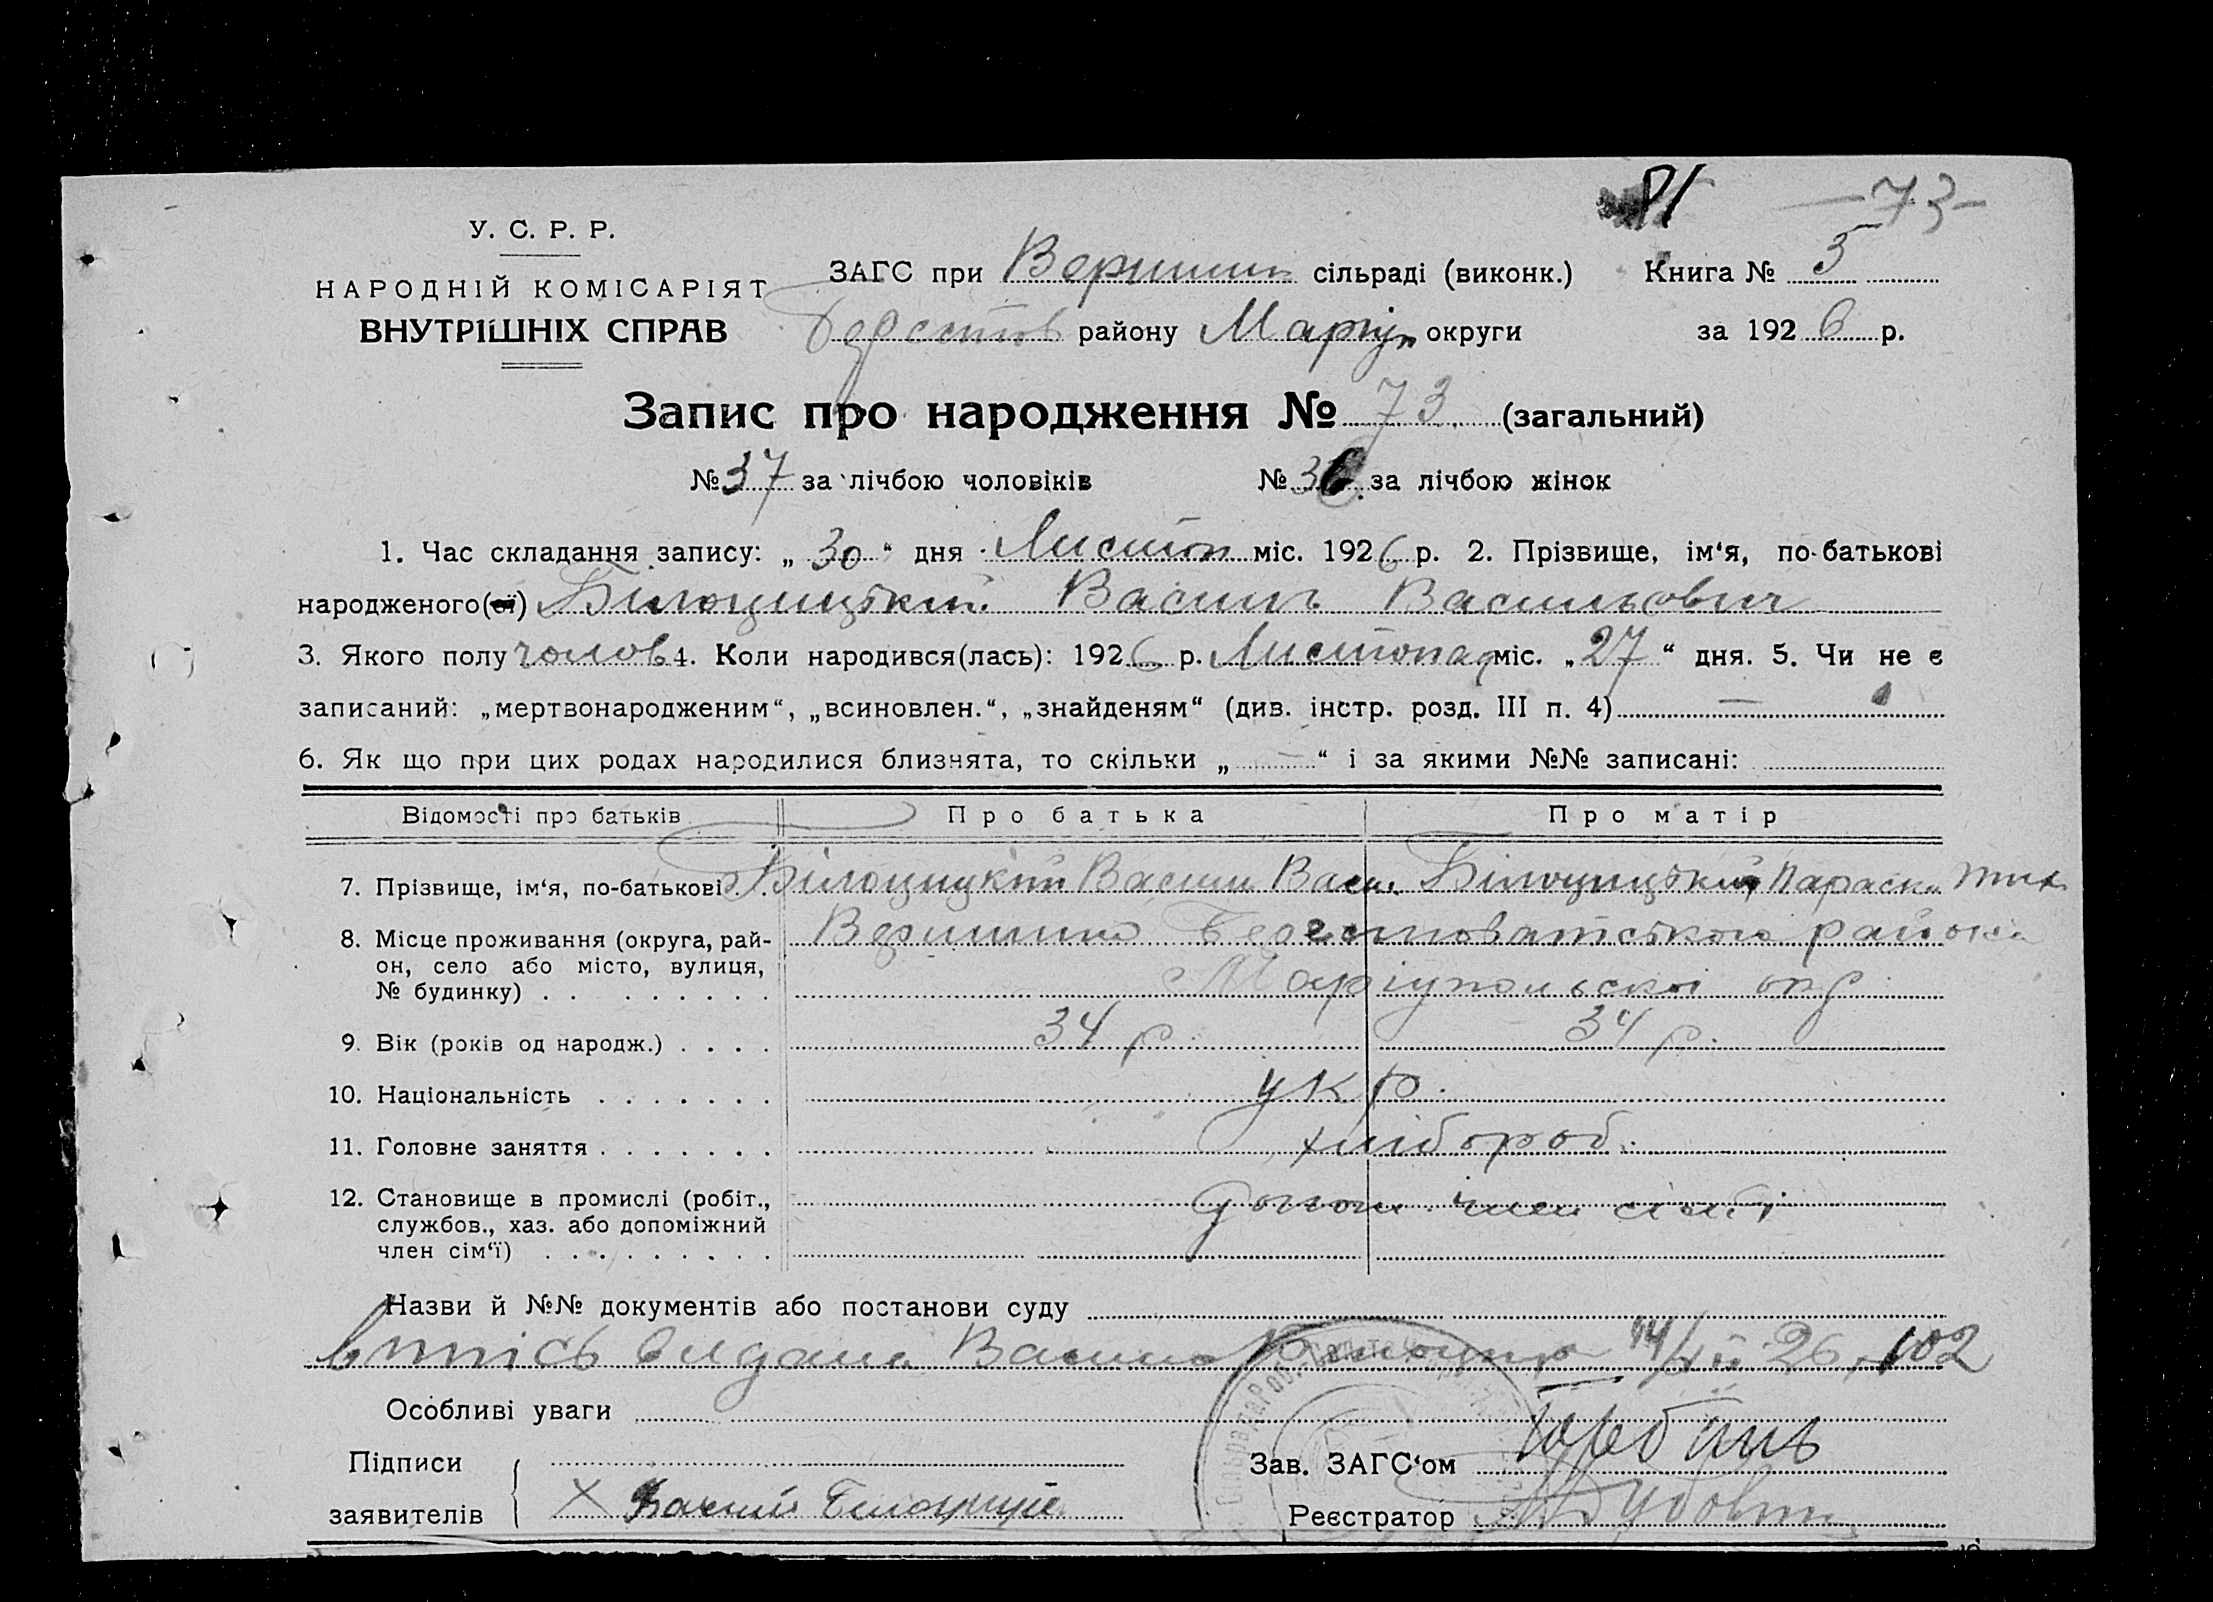 81 —73—
У. С. Р. Р.
НАРОДНІЙ КОМІСАРІЯТ
ВНУТРІШНІХ СПРАВ
ЗАГС при Вершин сільраді (виконк.) Книга № 5
Берестов району Маріуп округи за 1926 р.
Запис про народження № 73 (загальний)
№ 37 за лічбою чоловіків № 36 за лічбою жінок
1. Час складання запису: „ 30 “ дня Листоп міс. 1926 р. 2. Прізвище, ім‘я, по-батькові
народженого(ої) Білоцицький Василь Васильович
3. Якого полу чолов 4. Коли народився(лась): 1926 р. Листопад міс. „ 27 “ дня. 5. Чи не є
записаний: „мертвонародженим“, „всиновлен.“, „знайденям“ (див. інстр. розд. III п. 4) —
6. Як що при цих родах народилися близнята, то скільки „ — “ і за якими №№ записані:
Відомості про батьків Про батька Про матір
7. Прізвище, ім‘я, по-батькові Білоцицкий Васили Васи. Білоцицька Параск. Тих
8. Місце проживання (округа, рай-
он, село або місто, вулиця,
№ будинку)
Вершино Берестоватського района
Маріупольскоі окр
9. Вік (років од народж.) 34 р. 34 р.
10. Національність укр.
11. Головне заняття хлібороб.
12. Становище в промислі (робіт.,
службов., хаз. або допоміжний
член сім‘ї)
допом. член сімі
Назви й №№ документів або постанови суду
випісь видана Василю 26 102
Особливі уваги
Підписи
заявителів
Х Василь Білоциций
Зав. ЗАГС‘ом
Реєстратор